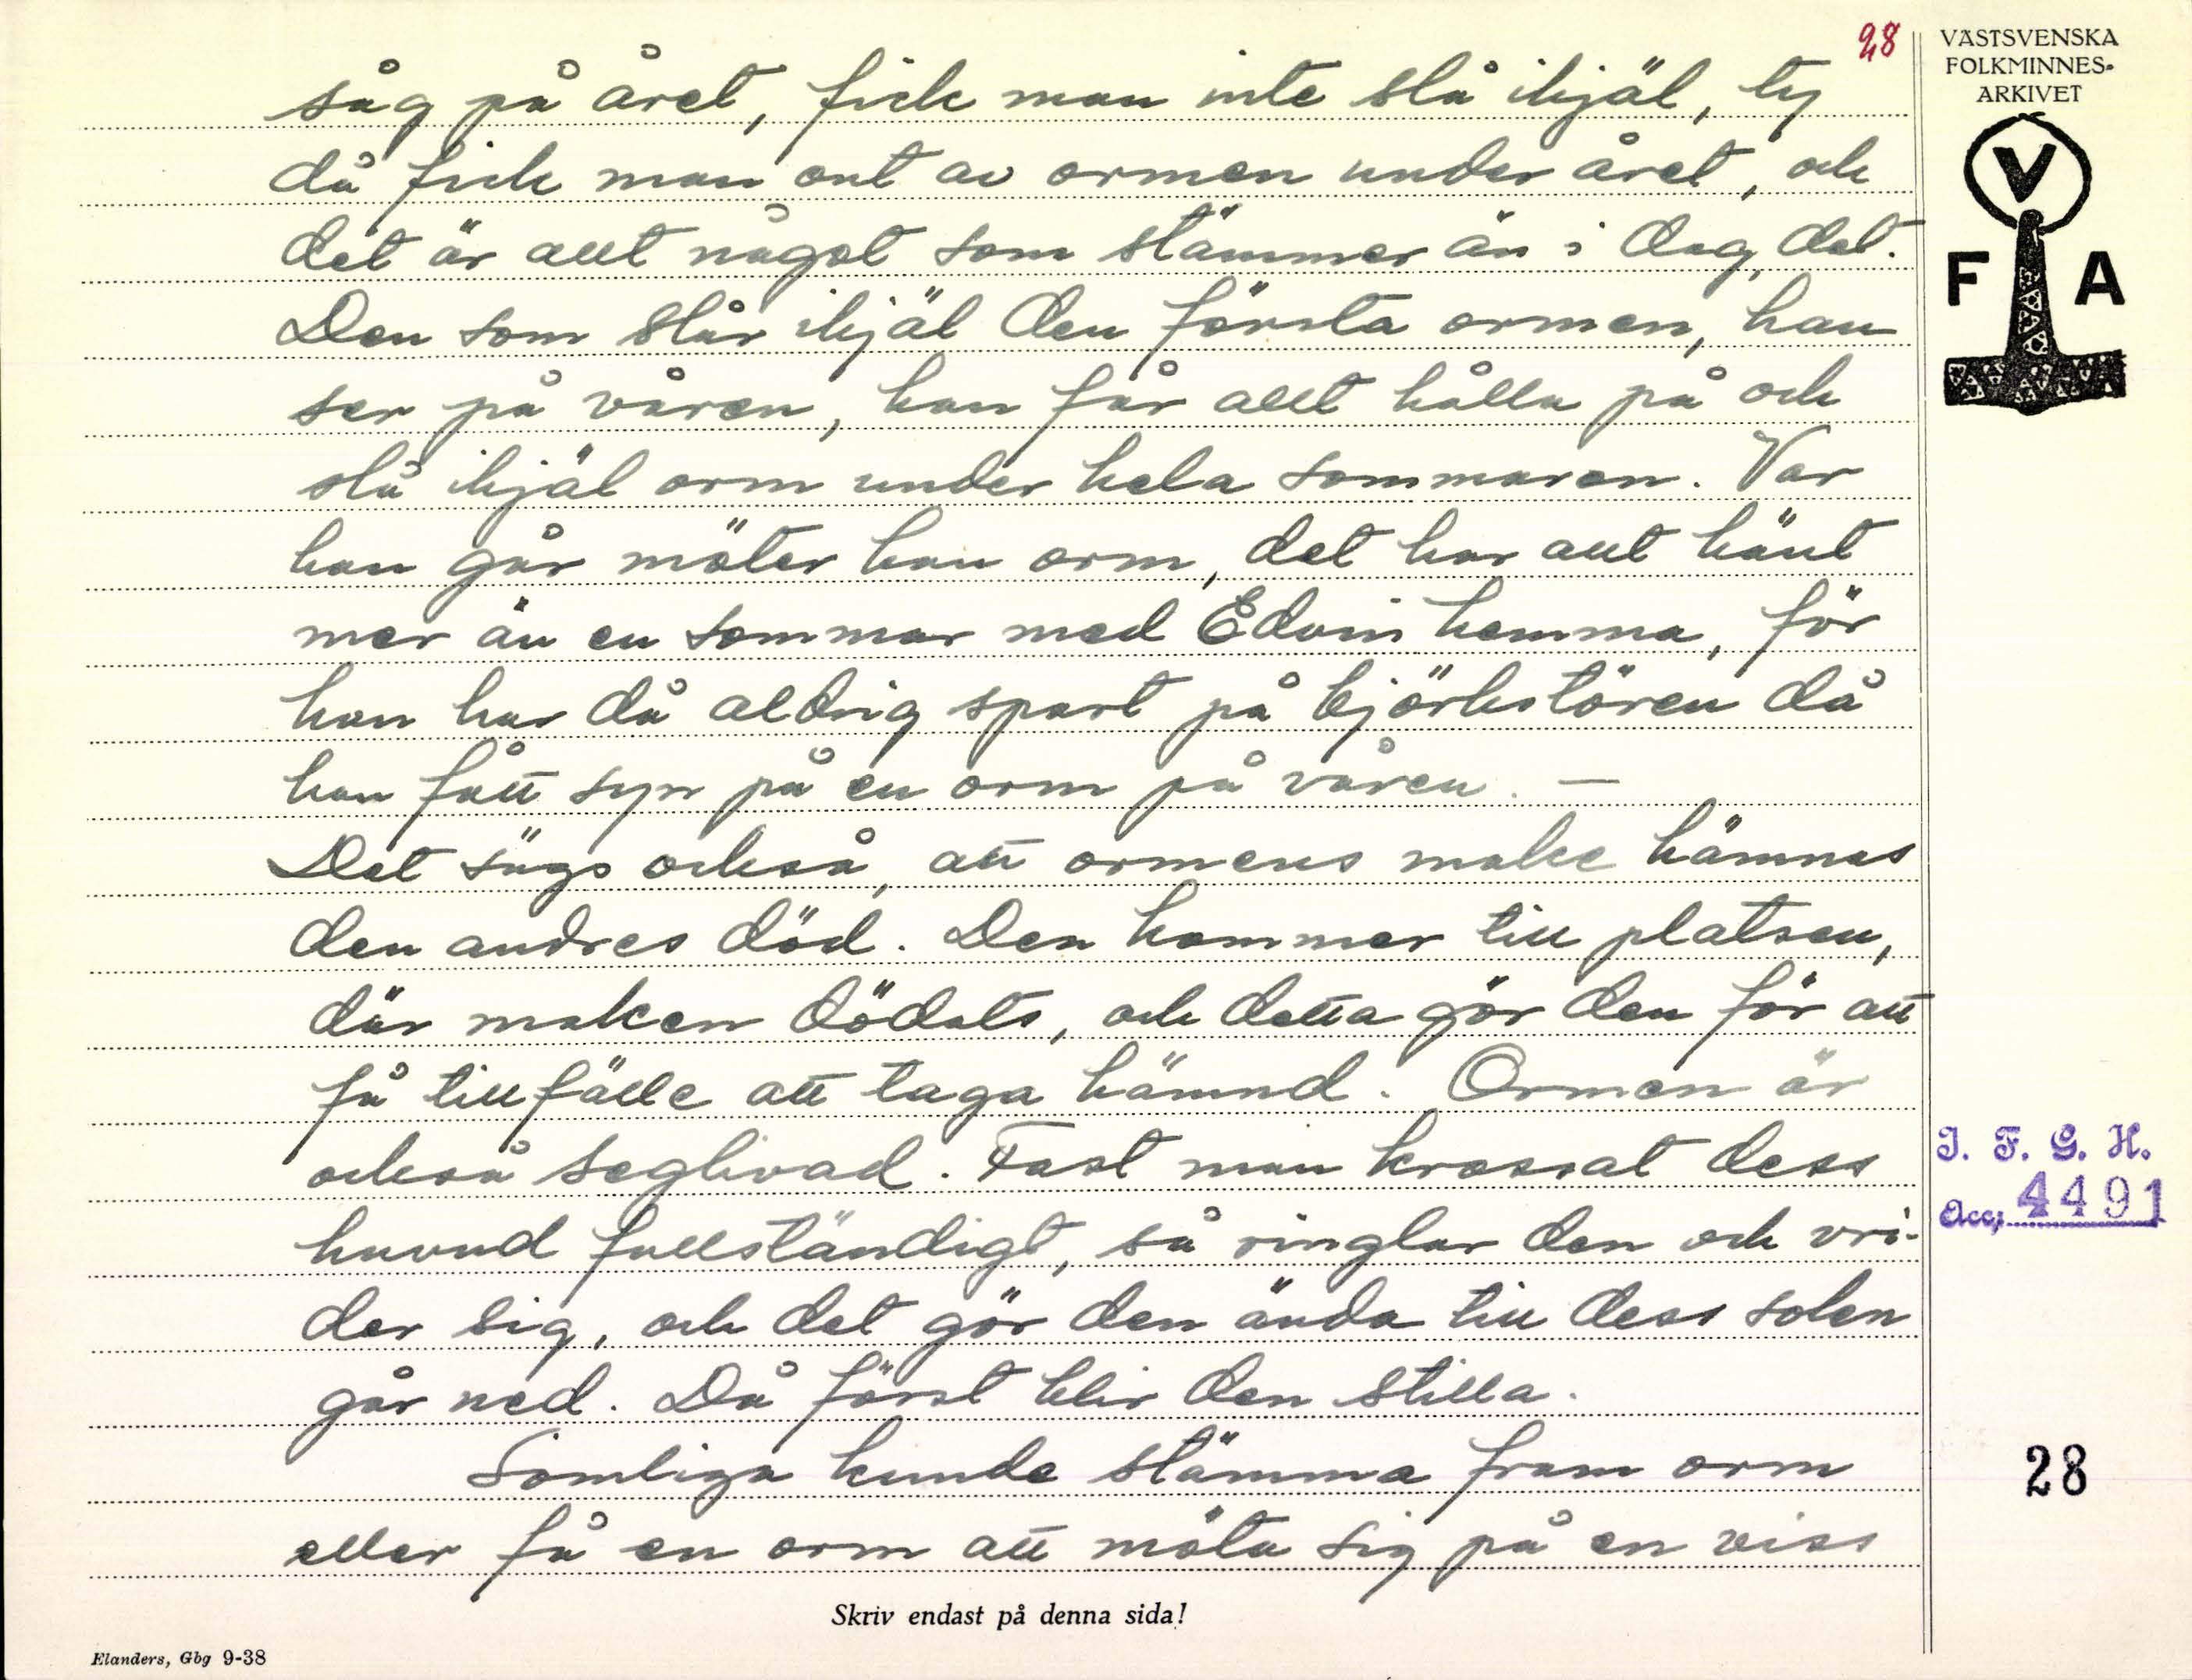 28
VÄSTSVENSKA
FOLKMINNES-
ARKIVET
V
F A
såg på året, fick man inte slå ihjäl, ty
då fick man ont av ormen under året, och
det är allt något som stämmer än i dag, det.
Den som slår ihjäl den första ormen, han
ser på våren, han får allt hålla på och
slå ihjäl orm under hela sommaren. Var
han går möter han orm, det har allt hänt
mer än en sommar med Edvin hemma, för
han har då aldrig spart på björkstören då
han fått syn på en orm på våren. —
Det sägs också, att ormens make hämnas
den andres död. Den kommer till platsen,
där maken dödats, och detta gör den för att
få tillfälle att taga hämnd. Ormen är
också seglivad. Fast man krossat dess
huvud fullständigt, så ringlar den och vri-
der sig, och det gör den ända till dess solen
går ned. Då först blir den stilla.
Somliga kunde stämma fram orm
eller få en orm att möta sig på en viss
I. F. G. H.
Acc. 4491
28
Skriv endast på denna sida!
Elanders, Gbg 9-38